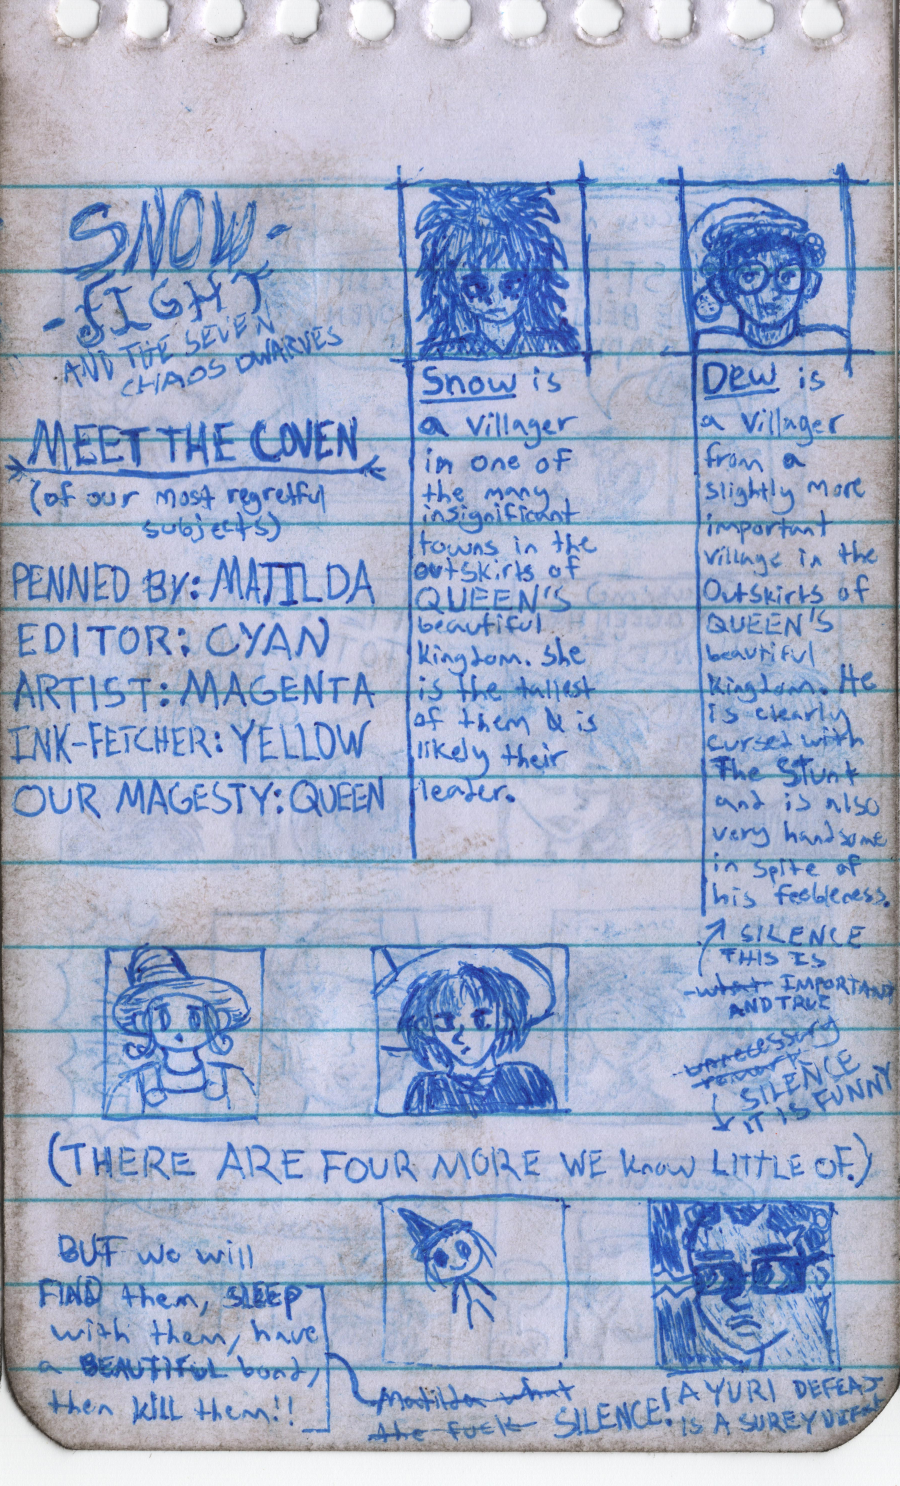 SNOW-
-FIGHT
AND THE SEVEN
CHAOS DWARVES
MEET THE COVEN
(of our most regretful
subjects)
PENNED BY: MATILDA
EDITOR: CYAN
ARTIST: MAGENTA
INK-FETCHER: YELLOW
OUR MAGESTY: QUEEN
Snow is
a villager
in one of
the many
insignificant
towns in the
outskirts of
QUEEN'S
beautiful
kingdom. She
is the tallest
of them & is
likely their
leader.
Dew is
a villager
from a
slightly more
important
village in the
outskirts of
QUEEN'S
beautiful
kingdom. He
is clearly
cursed with
The Stunt
and is also
very handsome
in spite of
his feebleness.
SILENCE
THIS IS
what IMPORTANT
AND TRUE
unnecessary
remark
SILENCE
IT IS FUNNY
(THERE ARE FOUR MORE WE know LITTLE OF.)
BUT we will
FIND them, SLEEP
with them, have
a BEAUTIFUL bond,
then kill them!!
Matilda what
the fuck
SILENCE! A YURI DEFEAT
IS A SUREY